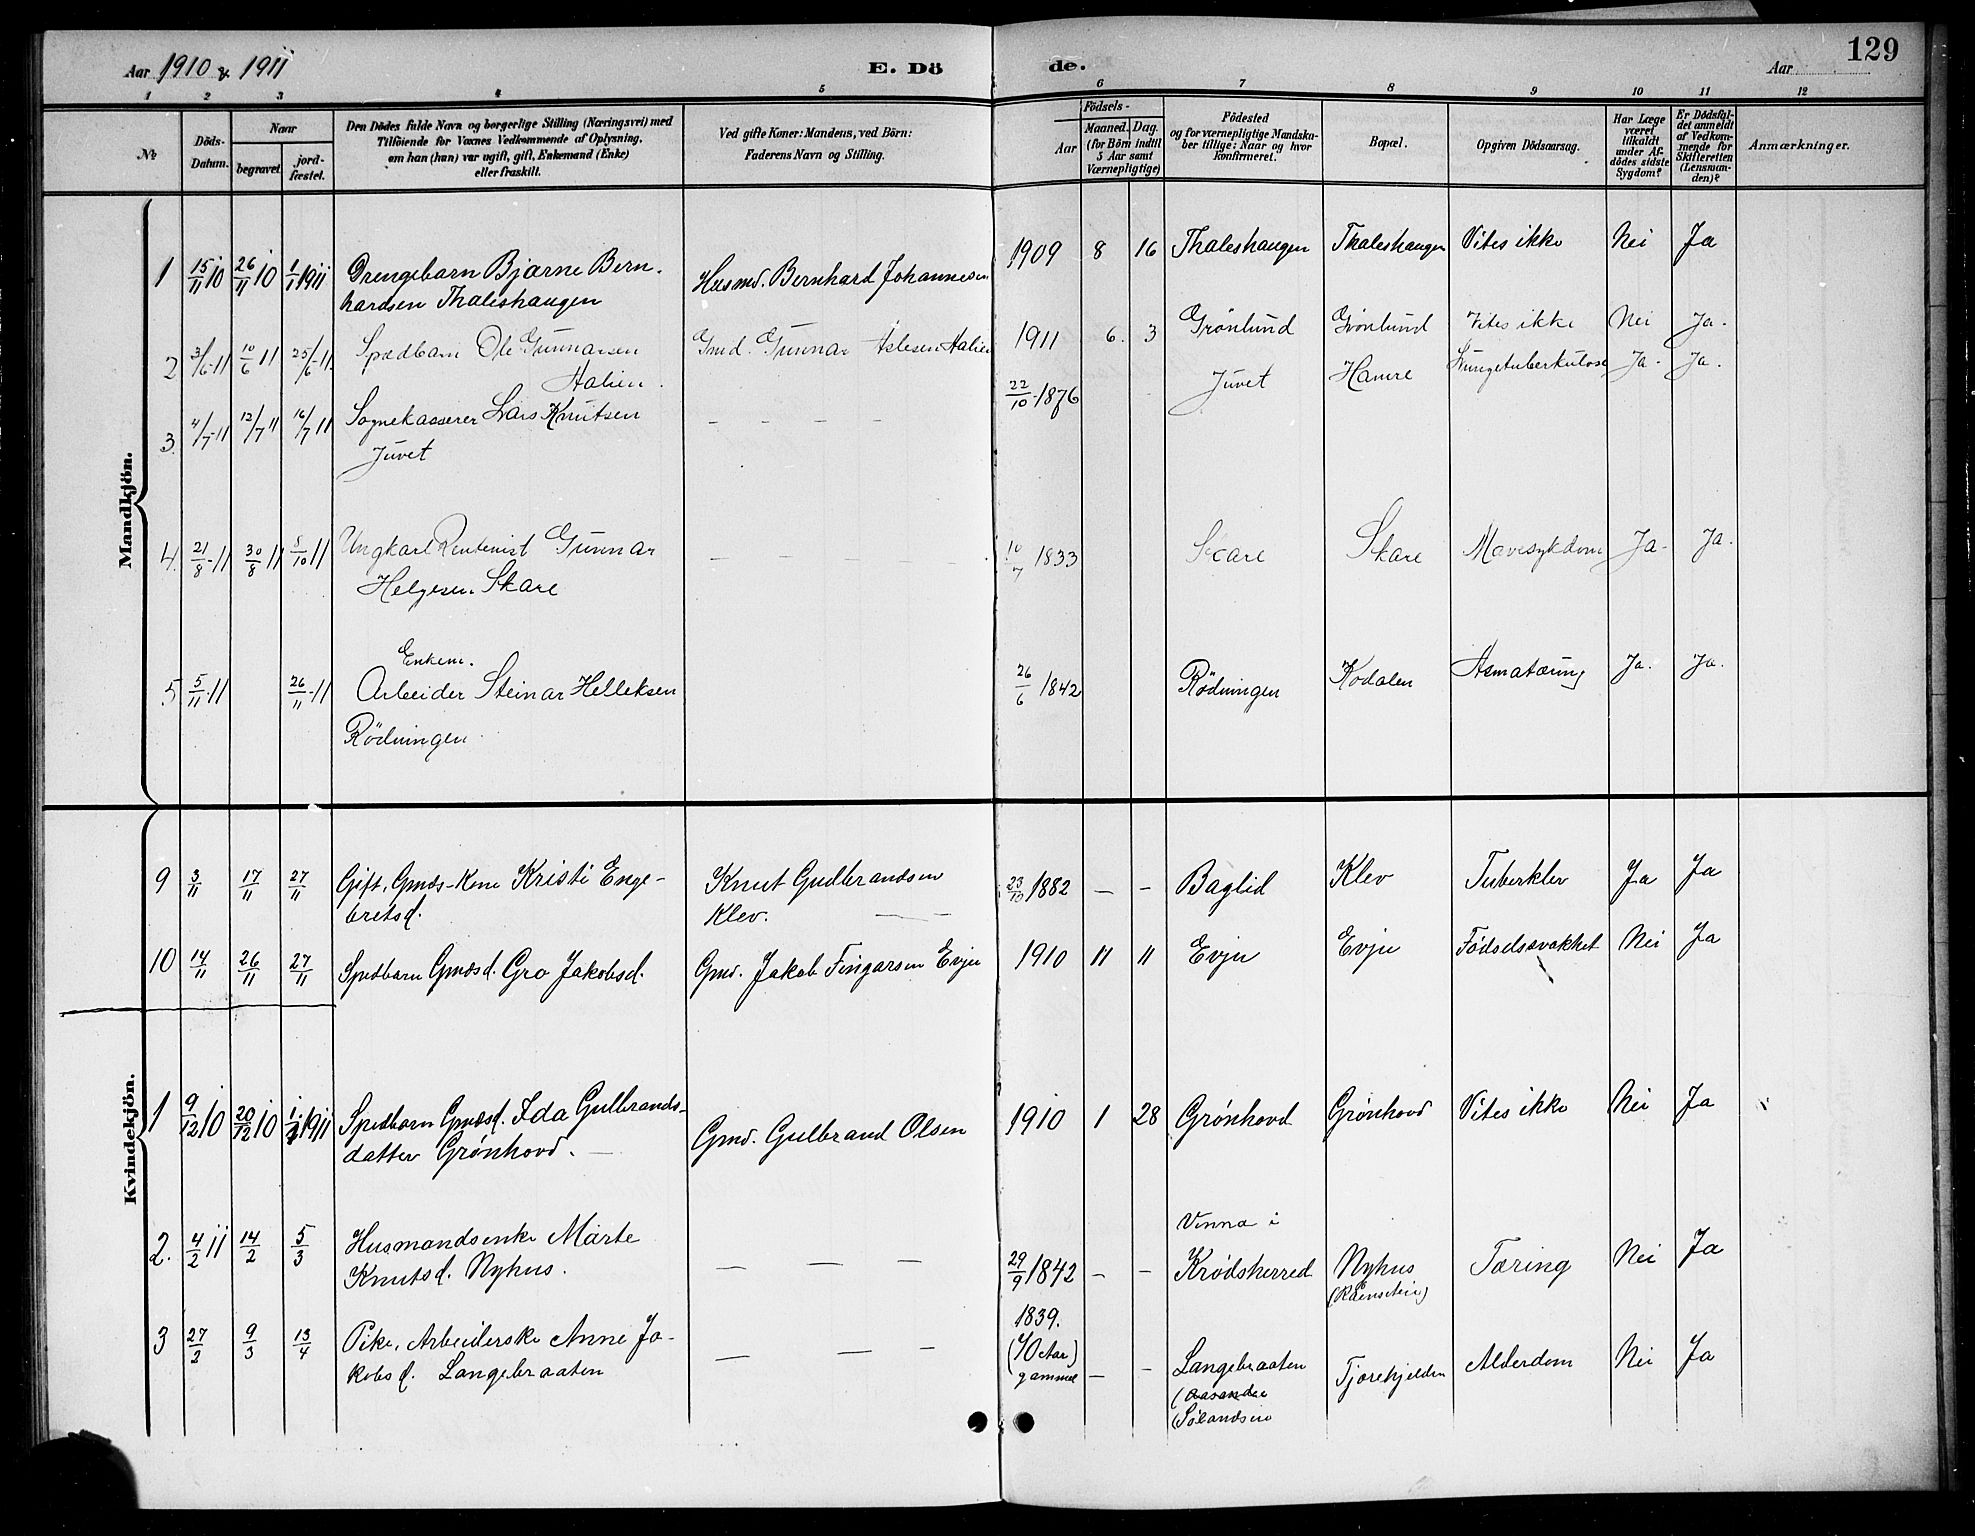 Aar 1910 & 1911
E. Dö
de.
Aar
129
1 2 3 4 5 6 7 8 9 10 11 12
№
Döds-
Datum.
Naar
begravet.
jord-
fæstet.
Den Dödes fulde Navn og borgerlige Stilling (Næringsvei) med
Tilföiende for Voxnes Vedkommende af Oplysning,
om han (hun) var ugift, gift, Enkemand (Enke)
eller fraskilt.
Ved gifte Koner: Mandens, ved Börn:
Faderens Navn og Stilling.
Födsels-
Aar
Maaned. Dag.
(for Börn indtil
5 Aar samt
Værnepligtige)
Födested
og for værnepligtige Mandska-
ber tillige: Naar og hvor
konfirmeret.
Bopæl.
Opgiven Dödsaarsag.
Har Læge
været
tilkaldt
under Af-
dödes sidste
Sygdom?
Er Dödsfal-
det anmeldt
af Vedkom-
mende for
Skifteretten
(Lensman-
den)?
Anmærkninger.
Mandkjön.
1 15/11 10 26/11 10 1/1 1911 Drengebarn Bjarne Bern- Husmd. Bernhard Johannesen 1909 8 16 Thaleshaugen Thaleshaugen Vites ikke Nei Ja
hardsen Thaleshaugen
2 3/6-11 10/6 11 25/6-11 Spædbarn Ole Gunnarsen Gmd. Gunnar Aslesen Aalien 1911 6. 3 Grønlund Grønlund Vites ikke Nei Ja.
Aalien.
3. 4/7-11 12/7 11 16/7 11 Sognekasserer Lars Knutsen — — — — 22/10-1876 Juvet Hamre Lungetuberkulose Ja- Ja.
Juvet
4. 21/8-11 30/8 11 8/10 11 Ungkarl Rentenist Gunnar — — — — 10/7 1833 Skare Skare Mavesykdom Ja- Ja.
Helgesen Skare
Enkem.
5 5/11-11 26/11-11 Arbeider Steinar Helleksen 26/6 1842 Rödningen Kodalen Asmatæring Ja. Ja.
Rödningen.
9 3/11 17/11 27/11 Gift, Gmds-Kone Kristi Enge- Knut Gudbrandsen 23/10 1882 — — Baglid Klev Tuberklev Ja Ja
bretsd. Klev. — —
10 14/11 26/11 27/11 Spedbarn Gmdsd. Gro Jakobsd. Gmd. Jakob Fingarsen Evju 1910 11 11 Evju Evju Fødselssvakhet Nei Ja
Kvindekjön.
1 9/12 10 20/12 10 1/1 1911 Spedbarn Gmdsd. Ida Gulbrands- Gmd. Gulbrand Olsen 1910 1 28 Grønhovd Grønhovd Vites ikke Nei Ja
datter Grønhovd. —
2. 4/2 11 14/2 5/3 Husmandsenke Marte — — — 29/9 1842 — — Vinna i
Krødsherred Nyhus Tæring Nei Ja
Knutsd. Nyhus.
3 27/2 9/3 13/4 Pike, Arbeiderske Anne Ja- — — — 1839.
(70 Aar)
gammel — — Langebraaten Tjorehjelden Alderdom Nei Ja
kobsd. Langebraaten